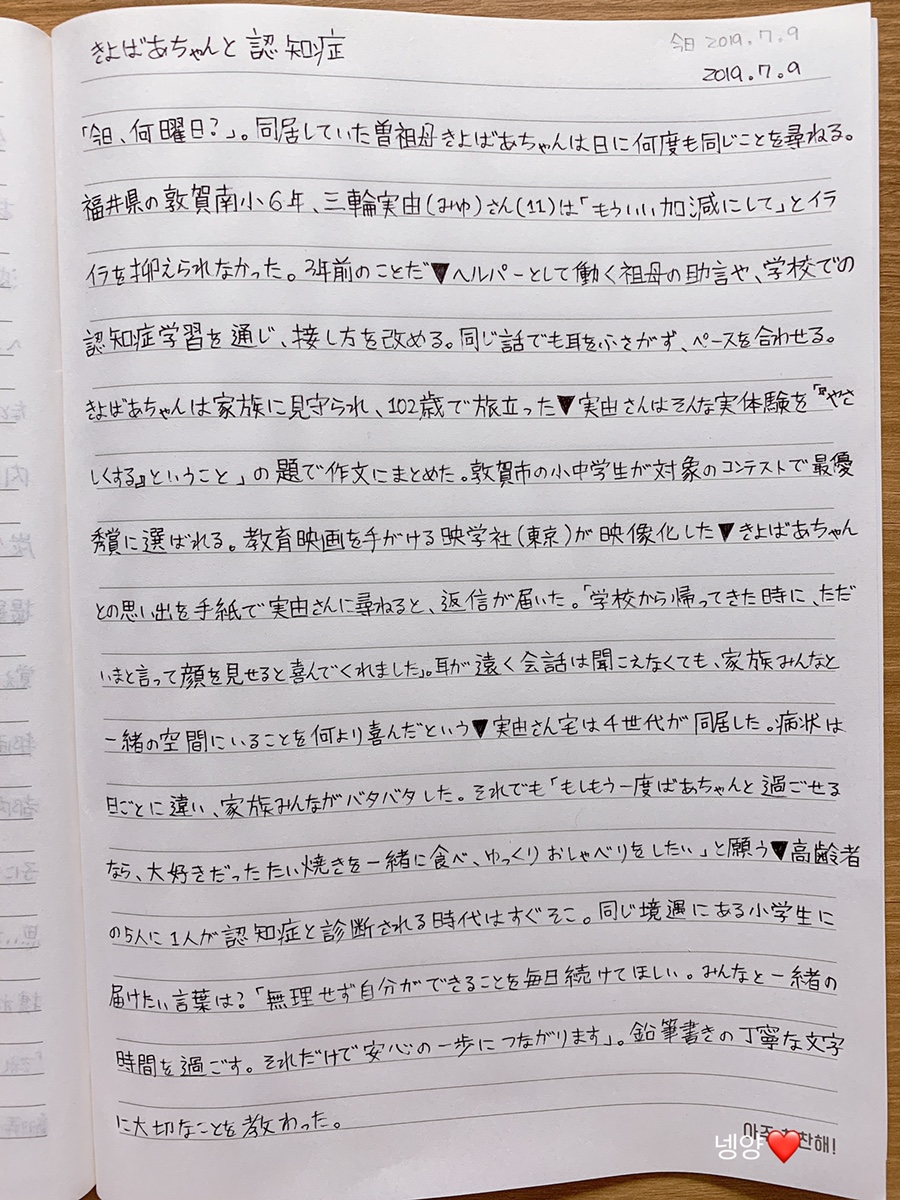 きよばあちゃんと認知症
今日 2019.7.9
2019.7.9
「今日、何曜日?」。同居していた曽祖母きよばあちゃんは日に何度も同じことを尋ねる。
福井県の敦賀南小6年、三輪実由(みゆ)さん(11)は「もういい加減にして」とイラ
イラを抑えられなかった。3年前のことだ▼ヘルパーとして働く祖母の助言や、学校での
認知症学習を通じ、接し方を改める。同じ話でも耳をふさがず、ペースを合わせる。
きよばあちゃんは家族に見守られ、102歳で旅立った▼実由さんはそんな実体験を「『やさ
しくする』ということ」の題で作文にまとめた。敦賀市の小中学生が対象のコンテストで最優
秀賞に選ばれる。教育映画を手がける映学社(東京)が映像化した▼きよばあちゃん
との思い出を手紙で実由さんに尋ねると、返信が届いた。「学校から帰ってきた時に、ただ
いまと言って顔を見せると喜んでくれました」。耳が遠く会話は聞こえなくても、家族みんなと
一緒の空間にいることを何より喜んだという▼実由さん宅は4世代が同居した。病状は
日ごとに違い、家族みんながバタバタした。それでも「もしもう一度ばあちゃんと過ごせる
なら、大好きだったたい焼きを一緒に食べ、ゆっくりおしゃべりをしたい」と願う▼高齢者
の5人に1人が認知症と診断される時代はすぐそこ。同じ境遇にある小学生に
届けたい言葉は?「無理せず自分ができることを毎日続けてほしい。みんなと一緒の
時間を過ごす。それだけで安心の一歩につながります」。鉛筆書きの丁寧な文字
に大切なことを教わった。
아주 찬해!
넹양❤️